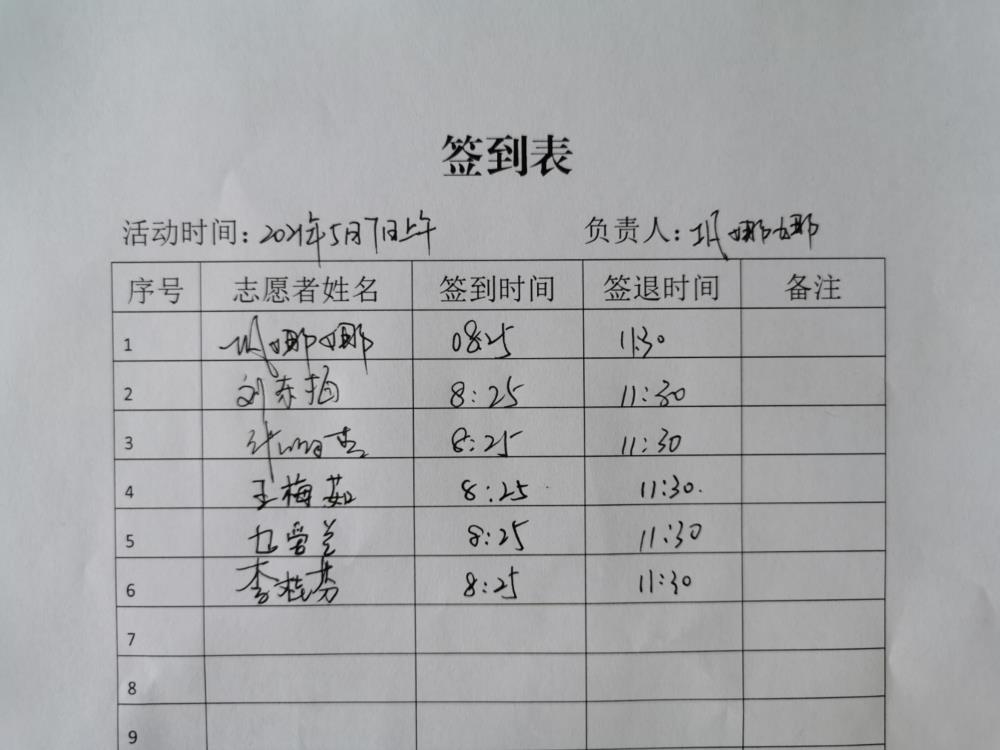 签到表
活动时间：2021年5月7日上午 负责人：娜娜
序号 志愿者姓名 签到时间 签退时间 备注
1 娜娜 08:25 11:30
2 刘东梅 8:25 11:30
3 8:25 11:30
4 王梅茹 8:25 11:30.
5 爱兰 8:25 11:30
6 李桂芬 8:25 11:30
7
8
9